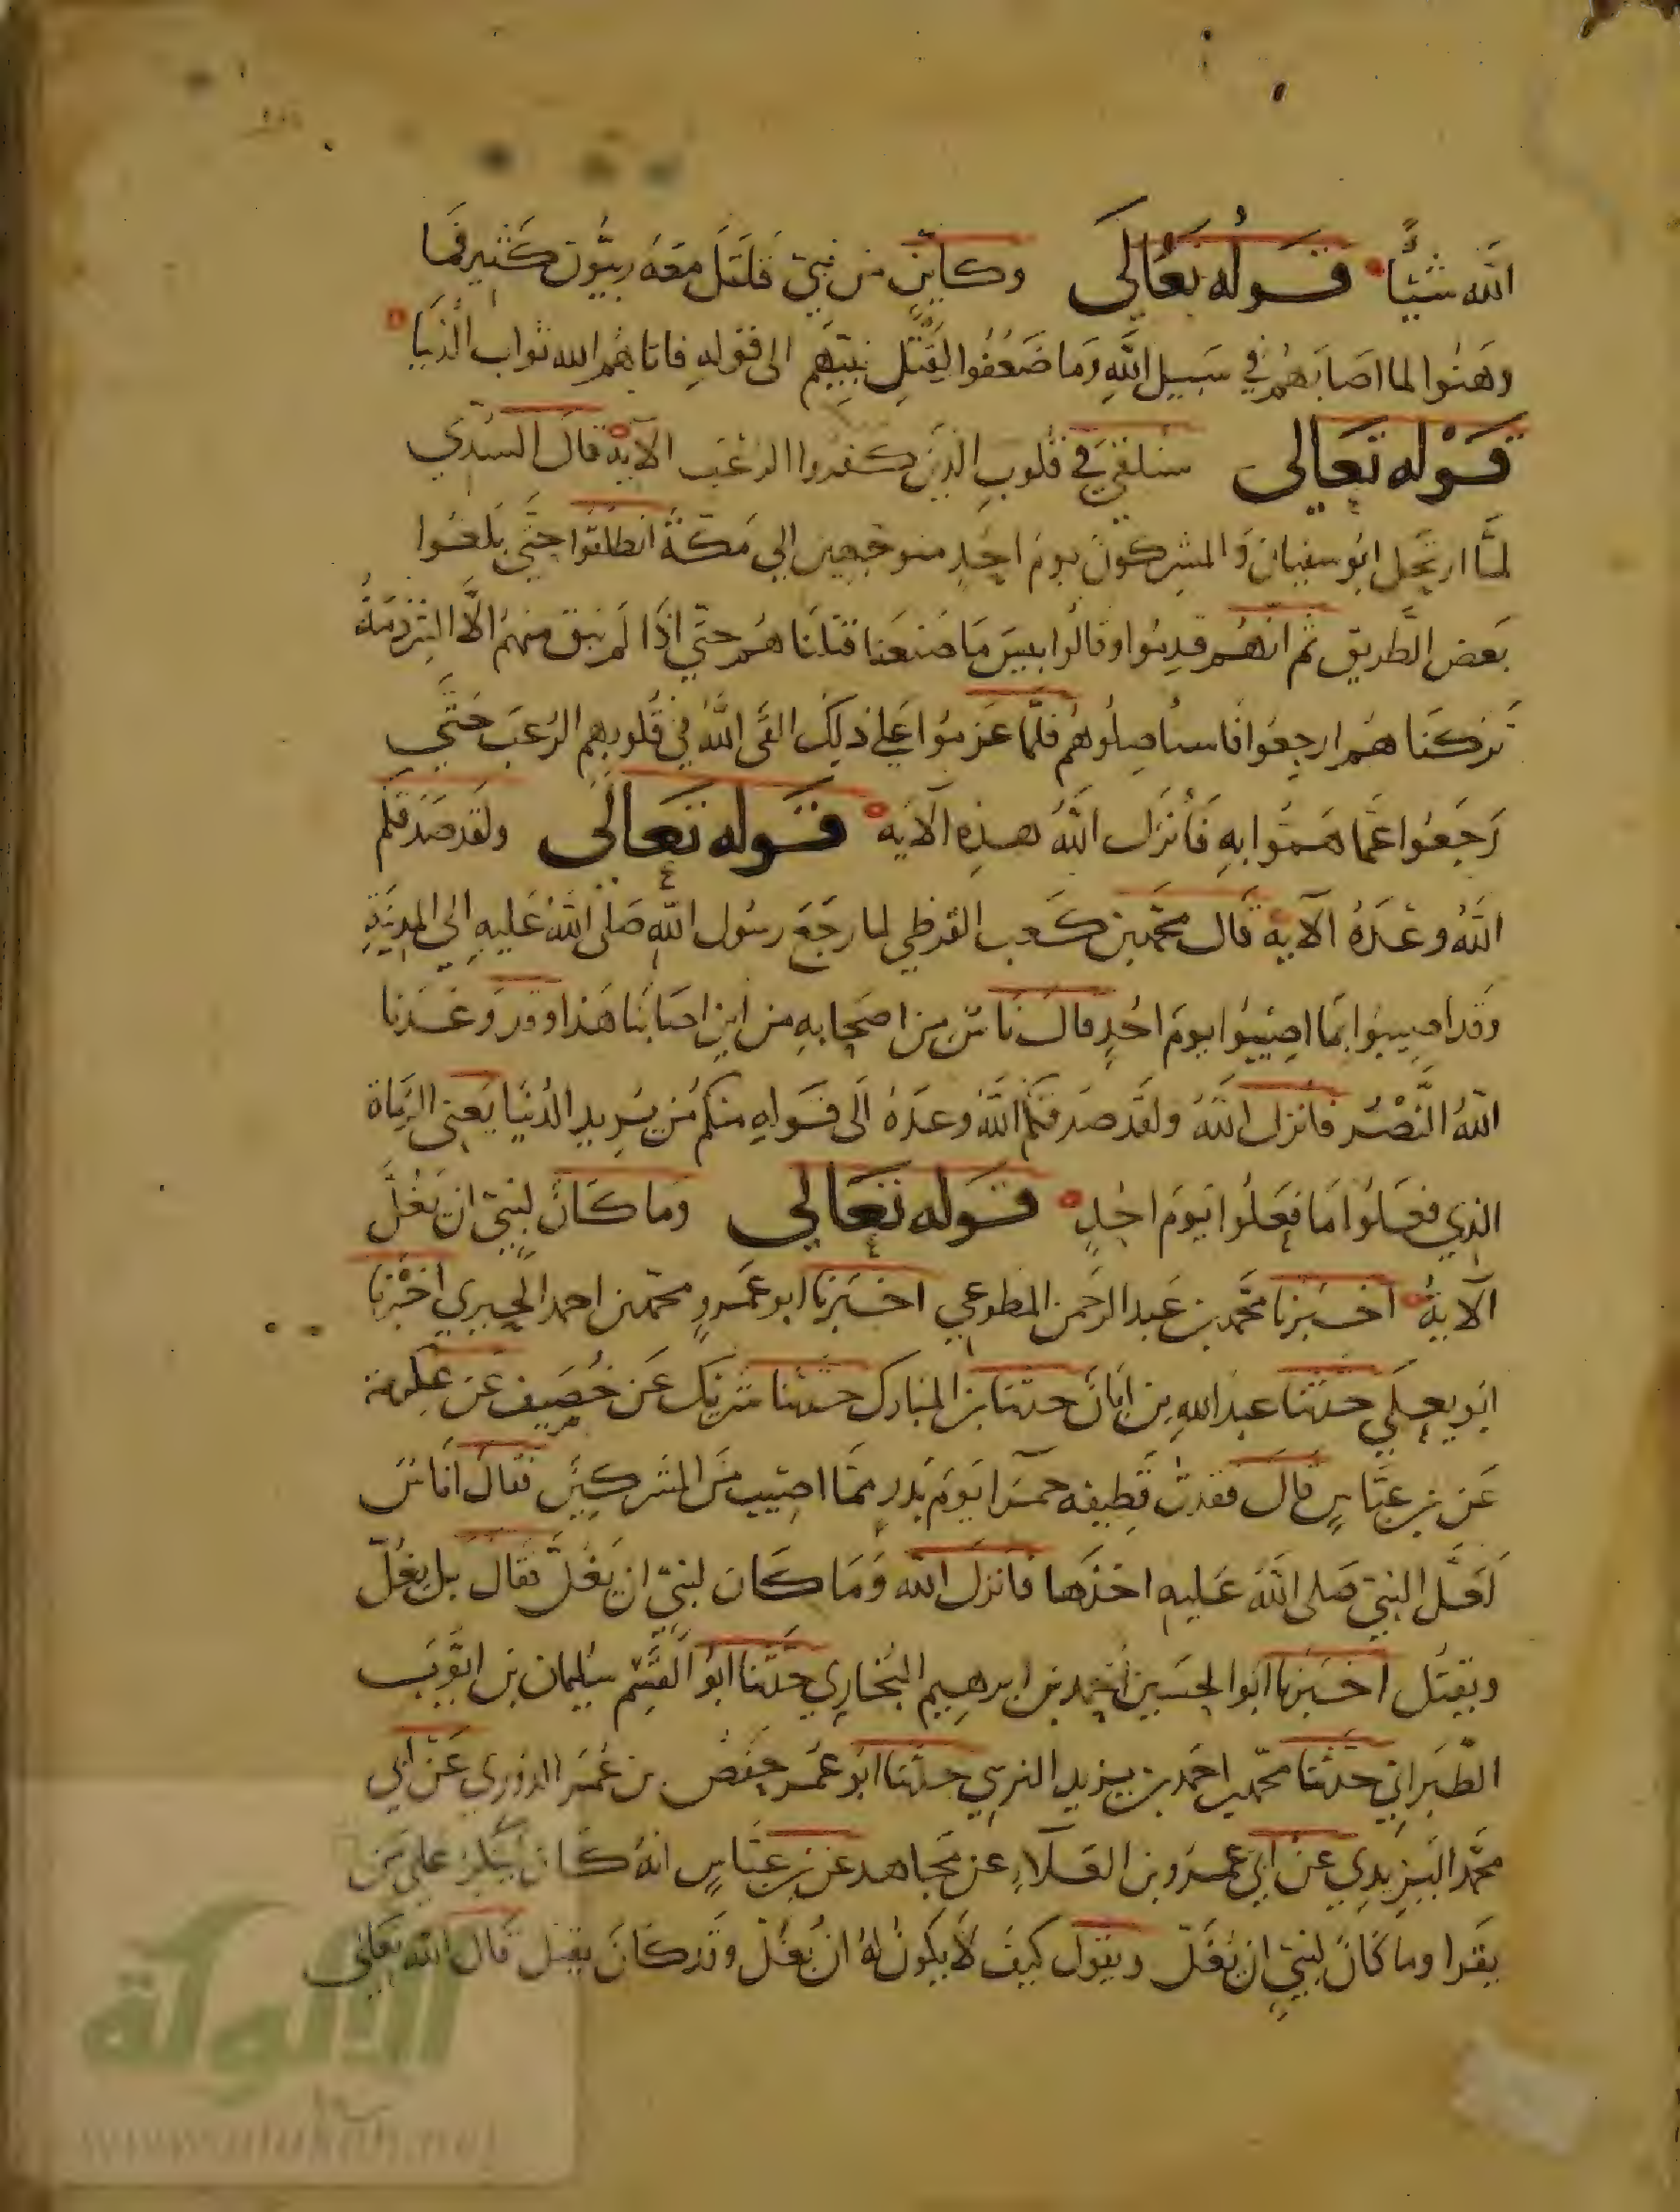 الله شيئًا قوله تعالى وكاين من نبي قتل معه ربيون كثير فما
وهنوا لما اصابهم في سبيل الله وما ضعفوا لقتل نبيهم الى قوله فاتاهم الله ثواب الدنيا
قوله تعالى سنلقي في قلوب الذين كفروا الرعب الآية قال السدي
لما ارتحل ابو سفيان والمشركون يوم احد متوجهين الى مكة انطلقوا حتى بلغوا
بعض الطريق ثم انهم قدموا وقالوا بيس ما صنعنا قتلناهم حتى اذا لم يبق منهم الا الشرذمة
تركناهم ارجعوا فاستاصلوهم فلما عزموا على ذلك القى الله في قلوبهم الرعب حتى
رجعوا عما هموا به فأنزل الله هذه الآيه قوله تعالى ولقد صدقكم
الله وعده الآية قال محمد بن كعب القرظي لما رجع رسول الله صلى الله عليه الى المدينة
وقد اصيبوا بما اصيبوا يوم احد قال ناس من اصحابه من اين اصابنا هذا وقد وعدنا
الله النصر فانزل الله ولقد صدقكم الله وعده الى قوله منكم من يريد الدنيا يعني الرماة
الذي فعلوا ما فعلوا يوم احد قوله تعالى وما كان لنبي ان يغل
الآية اخبرنا محمد بن عبد الرحمن المطوعي اخبرنا ابو عمرو محمد بن احمد الحيري اخبرنا
ابو يعلي حدثنا عبد الله بن ابان حدثنا بن المبارك حدثنا شريك عن خصيف عن عكرمة
عن بن عباس قال فقدت قطيفه حمرا يوم بدر مما اصيب من المشركين فقال اناس
لعل النبي صلى الله عليه اخذها فانزل الله وما كان لنبي ان يغل فقال بل يغل
ويقتل اخبرنا ابو الحسين احمد بن ابرهيم البخاري حدثنا ابو القسم سليمان بن ايوب
الطبراني حدثنا محمد بن احمد بن يزيد النرسي حدثنا ابو عمر حفص بن عمر الدوري عن ابي
محمد اليزيدي عن ابي عمرو بن العلاء عن مجاهد عن بن عباس انه كان ينكر على من
يقرا وما كان لنبي ان يغل ويقول كيف لا يكون له ان يغل وقد كان يقتل قال الله تعالى
الألوكة
www.alukah.net